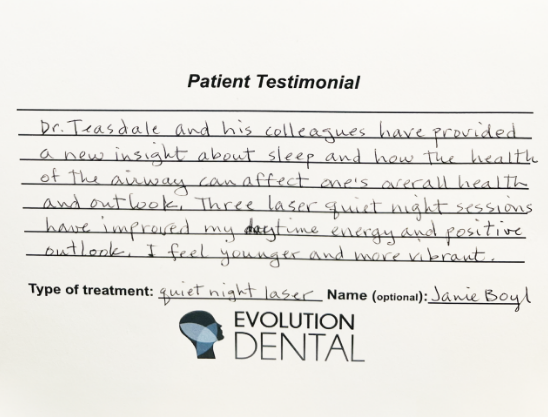 Patient Testimonial
Dr. Teasdale and his colleagues have provided
a new insight about sleep and how the health
of the airway can affect one's overall health
and outlook. Three laser quiet night sessions
have improved my daytime energy and positive
outlook. I feel younger and more vibrant.
Type of treatment: quiet night laser Name (optional): Janie Boyl
EVOLUTION
DENTAL